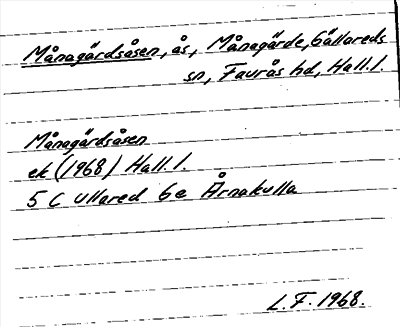 Månagärdsåsen, ås, Månagärde, Gällareds
sn, Faurås hd, Hall.l.
Månagärdsåsen
ek (1968) Hall.l.
5 C Ullared 6e Årnakulla
L.F. 1968.